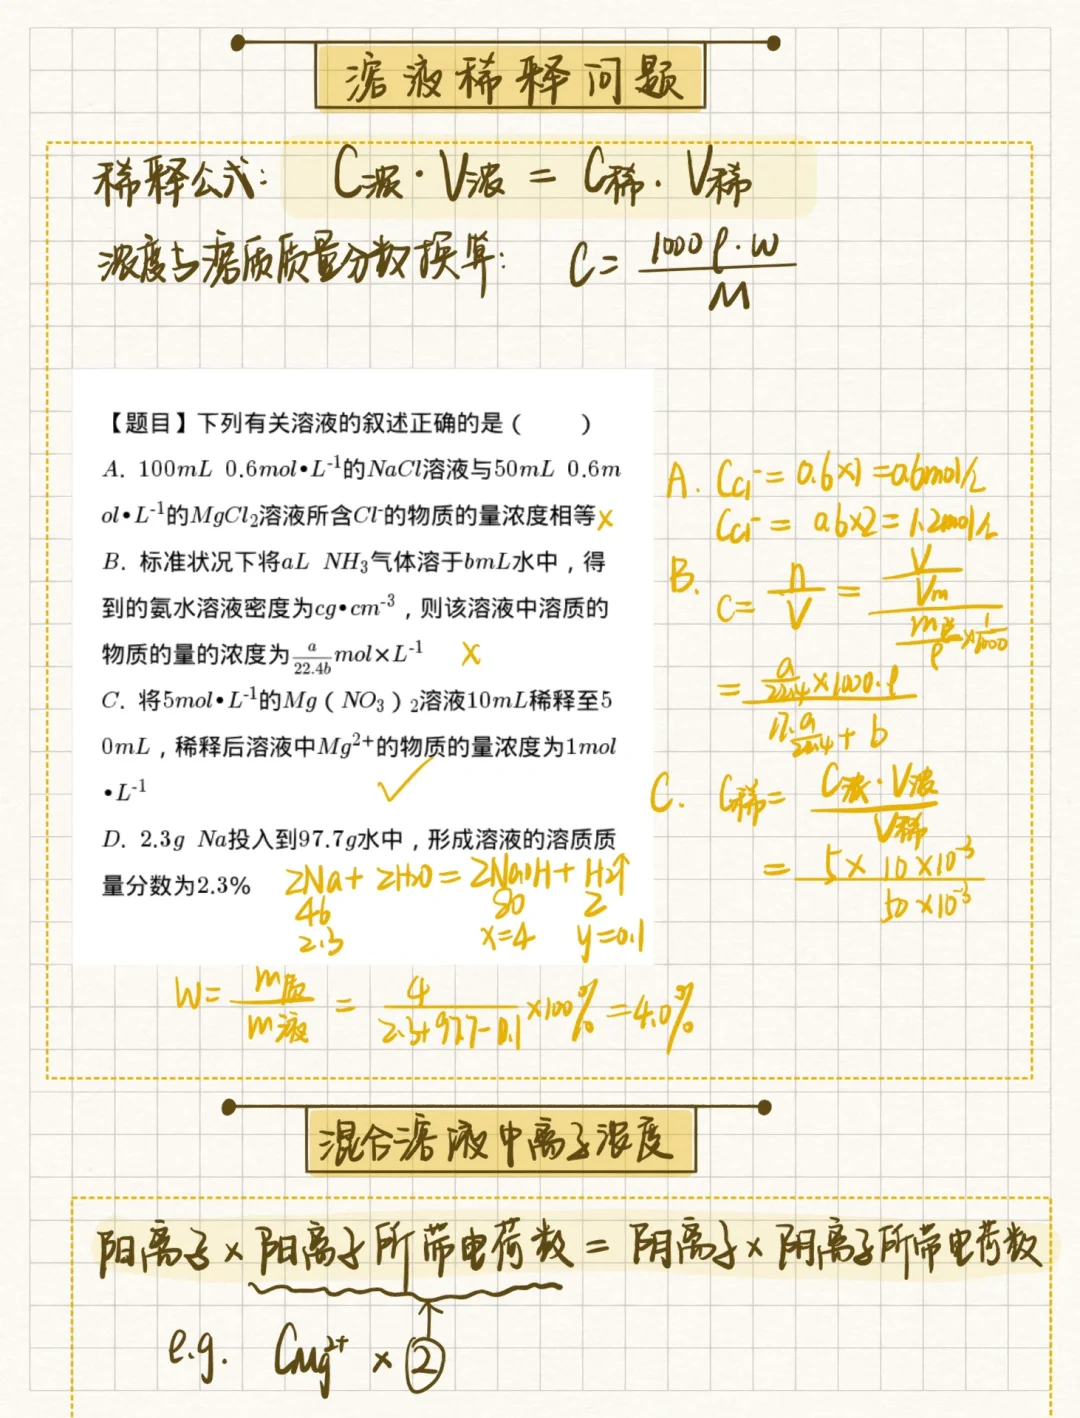 溶液稀释问题
稀释公式: C浓·V浓 = C稀·V稀
浓度与溶质质量分数换算: C = 1000ρ·w / M
【题目】下列有关溶液的叙述正确的是（  ）
A. 100mL 0.6mol•L⁻¹的NaCl溶液与50mL 0.6m
ol•L⁻¹的MgCl₂溶液所含Cl⁻的物质的量浓度相等 ×
B. 标准状况下将aL NH₃气体溶于bmL水中，得
到的氨水溶液密度为cg•cm⁻³，则该溶液中溶质的
物质的量的浓度为a/22.4b mol×L⁻¹ ×
C. 将5mol•L⁻¹的Mg（NO₃）₂溶液10mL稀释至5
0mL，稀释后溶液中Mg²⁺的物质的量浓度为1mol
•L⁻¹ ✓
D. 2.3g Na投入到97.7g水中，形成溶液的溶质质
量分数为2.3%
2Na + 2H₂O = 2NaOH + H₂↑
46 80 2
2.3 x=4 y=0.1
W = m质/m液 = 4/(2.3+97.7-0.1) ×100% = 4.0%
A. CCl⁻ = 0.6×1 = 0.6mol/L
CCl⁻ = 0.6×2 = 1.2mol/L
B. C = n/V = (V/Vm)/(m总/ρ × 1/1000)
= (a/22.4 ×1000·ρ)/(17·a/22.4 + b)
C. C稀 = C浓·V浓/V稀
= 5×10×10⁻³/50×10⁻³
混合溶液中离子浓度
阳离子×阳离子所带电荷数 = 阴离子×阴离子所带电荷数
e.g. CMg²⁺ × ②